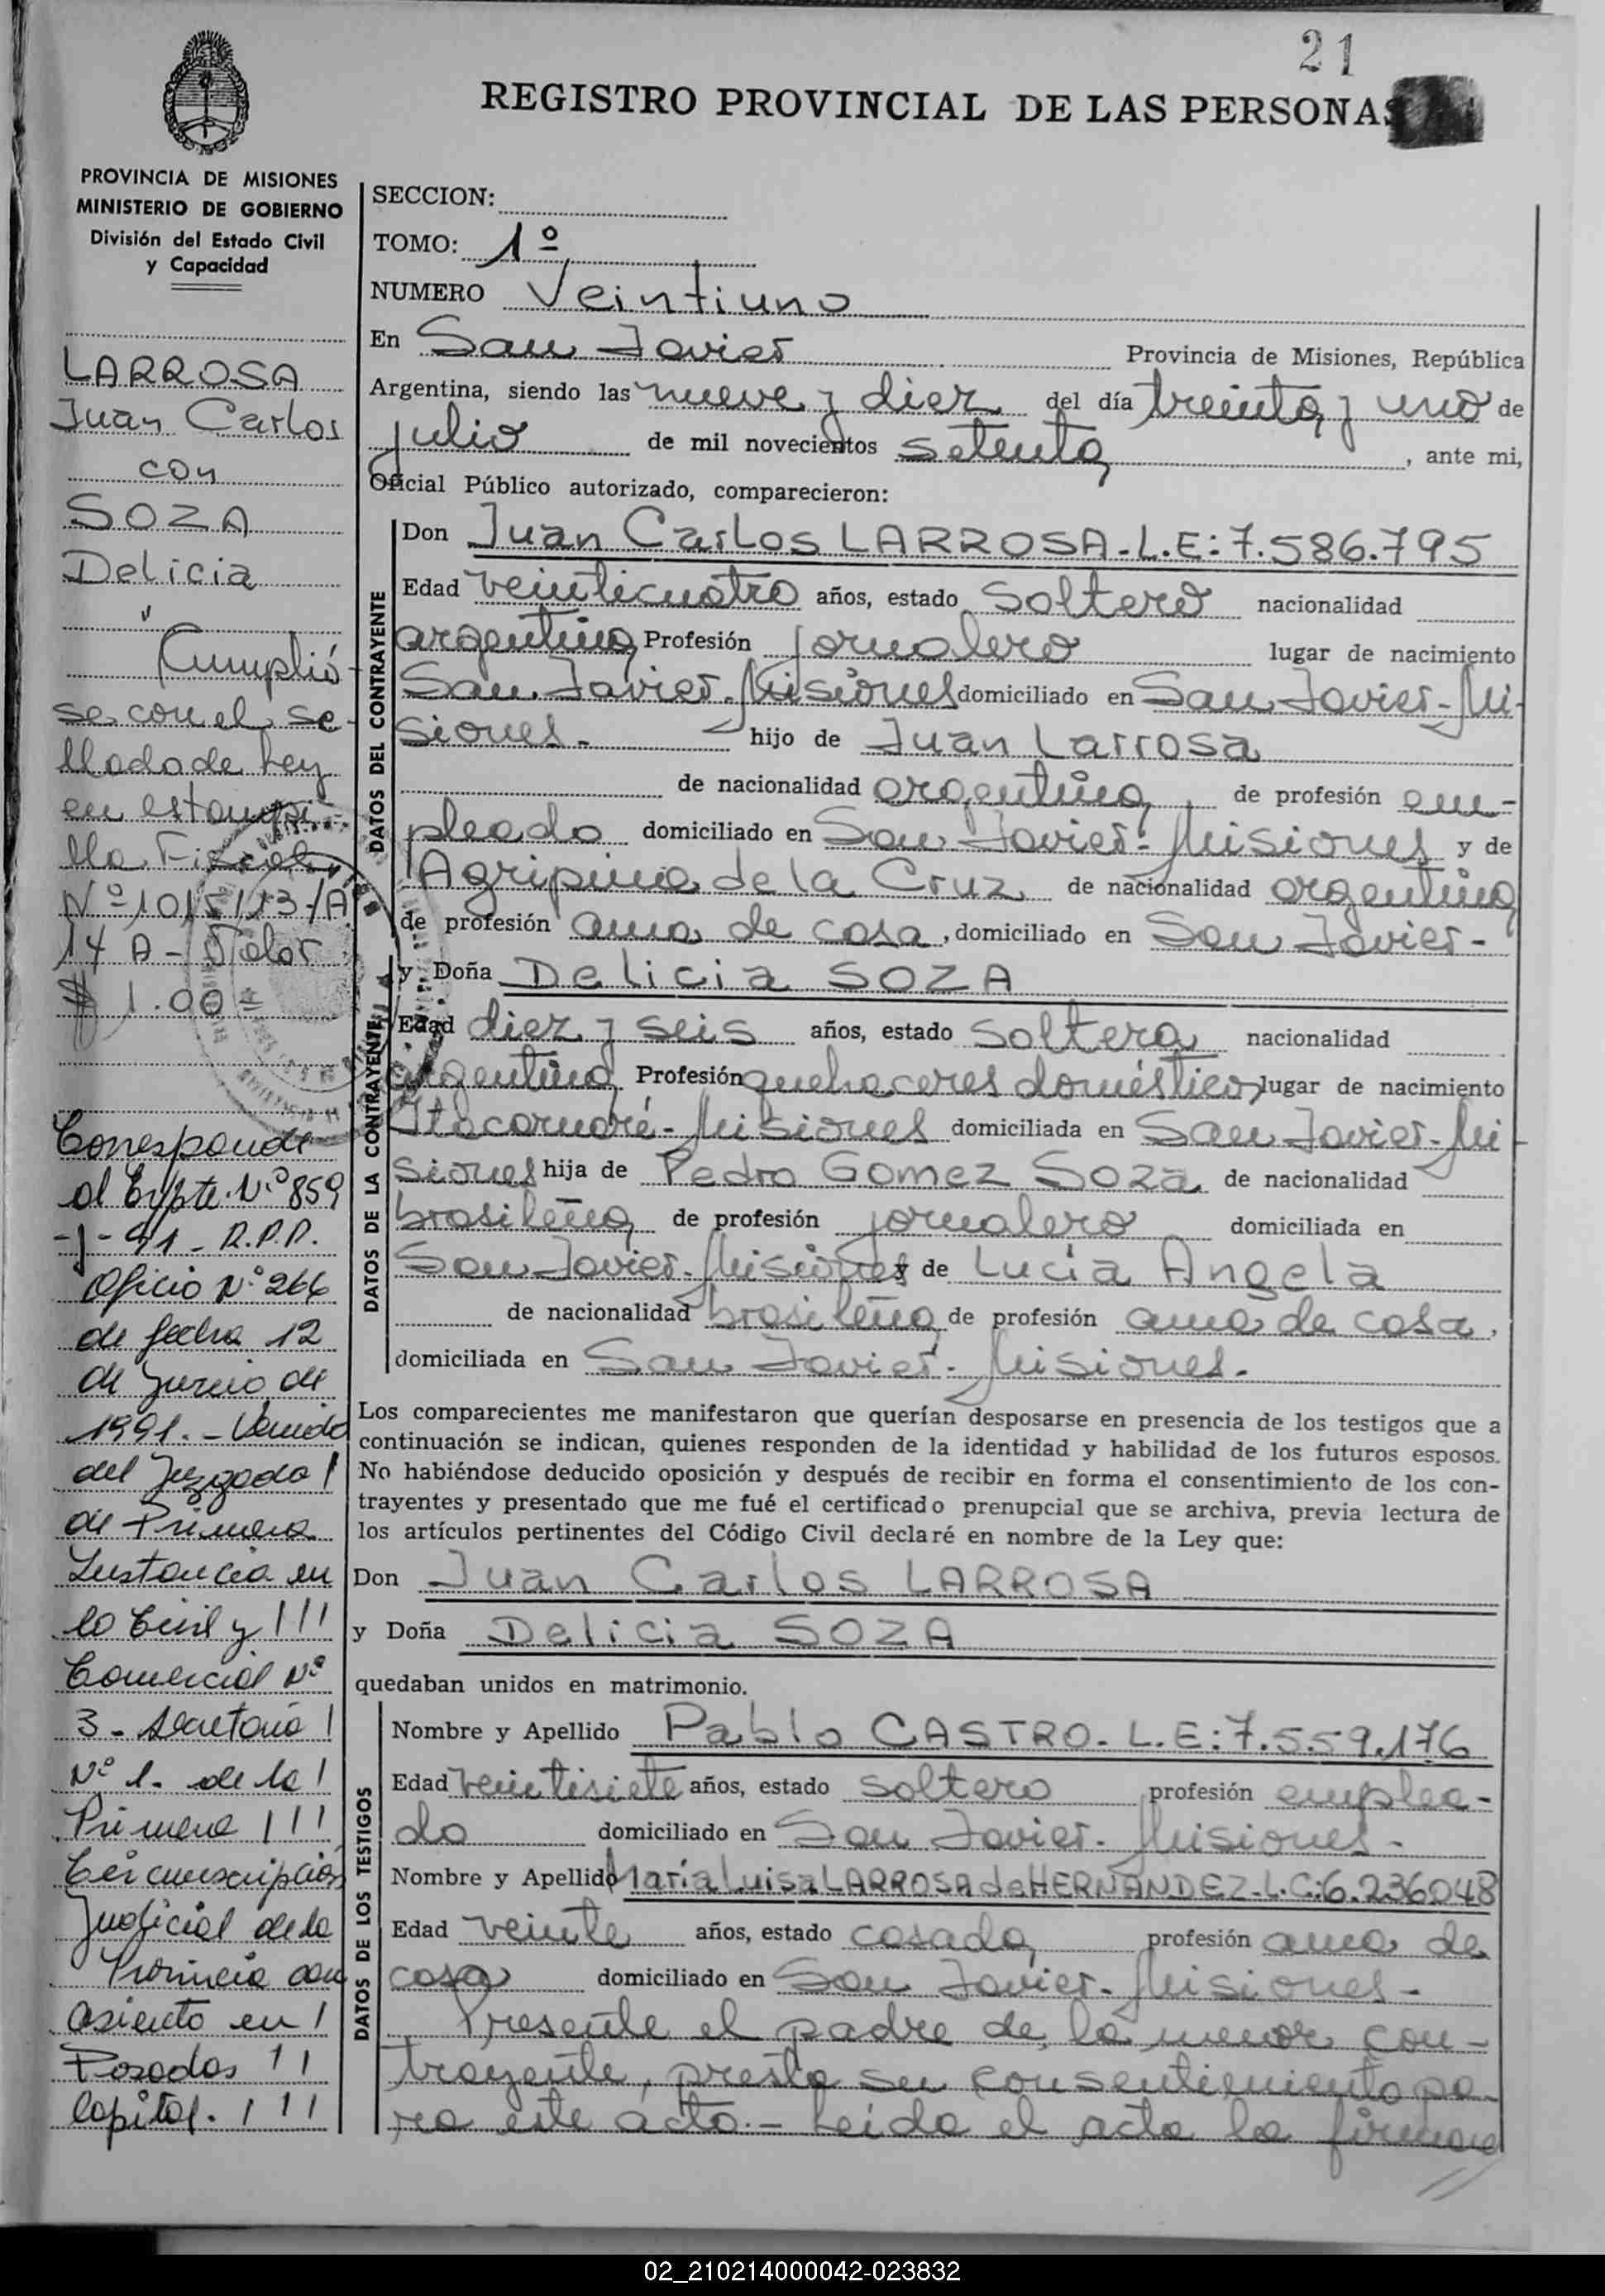 21
REGISTRO PROVINCIAL DE LAS PERSONAS
PROVINCIA DE MISIONES
MINISTERIO DE GOBIERNO
División del Estado Civil
y Capacidad
LARROSA
Juan Carlos
con
SOZA
Delicia
"
Cumplió-
se con el se-
llado de Ley
en estampi-
lla Fiscal
Nº
14 A - Valor
$ 1.00=
Corresponde
al Expte. Nº 859
-J- 91 - R.P.P.
Oficio Nº 266
de fecha 12
de Junio de
1991. - Venido
del Juzgado /
de Primera
Instancia en
lo Civil y ///
Comercial Nº
3 - Secretaria /
Nº 1. de la /
Primera ///
Circunscripción
Judicial de la
Provincia con
asiento en /
Posadas //
Capital. ///
SECCION:
TOMO: 1º
NUMERO Veintiuno
En San Javier Provincia de Misiones, República
Argentina, siendo las nueve y diez del día treinta y uno de
julio de mil novecientos setenta, ante mi,
Oficial Público autorizado, comparecieron:
DATOS DEL CONTRAYENTE
Don Juan Carlos LARROSA - L.E: 7.586.795
Edad veinticuatro años, estado soltero nacionalidad
argentina Profesión jornalero lugar de nacimiento
San Javier - Misiones domiciliado en San Javier - Mi-
siones - hijo de Juan Larrosa
de nacionalidad argentina, de profesión em-
pleado domiciliado en San Javier - Misiones y de
Agripina de la Cruz de nacionalidad argentina
de profesión ama de casa, domiciliado en San Javier -
DATOS DE LA CONTRAYENTE
y Doña Delicia SOZA
Edad diez y seis años, estado soltera nacionalidad
argentina Profesión quehaceres domésticos lugar de nacimiento
Itacaruaré - Misiones domiciliada en San Javier - Mi-
siones hija de Pedro Gomez Soza de nacionalidad
brasileña de profesión jornalero domiciliada en
San Javier - Misiones y de Lucía Angela
de nacionalidad brasileña de profesión ama de casa,
domiciliada en San Javier - Misiones -
Los comparecientes me manifestaron que querían desposarse en presencia de los testigos que a
continuación se indican, quienes responden de la identidad y habilidad de los futuros esposos.
No habiéndose deducido oposición y después de recibir en forma el consentimiento de los con-
trayentes y presentado que me fué el certificado prenupcial que se archiva, previa lectura de
los artículos pertinentes del Código Civil declaré en nombre de la Ley que:
Don Juan Carlos LARROSA
y Doña Delicia SOZA
quedaban unidos en matrimonio.
DATOS DE LOS TESTIGOS
Nombre y Apellido Pablo CASTRO - L.E: 7.559.176
Edad veintisiete años, estado soltero profesión emplea-
do domiciliado en San Javier - Misiones -
Nombre y Apellido María Luisa LARROSA de HERNANDEZ - L.C: 6.236.048
Edad veinte años, estado casada profesión ama de
casa domiciliado en San Javier - Misiones -
Presente el padre de la menor con-
trayente, presta su consentimiento pa-
ra este acto. - Leída el acta la firman
//
02_210214000042-023832